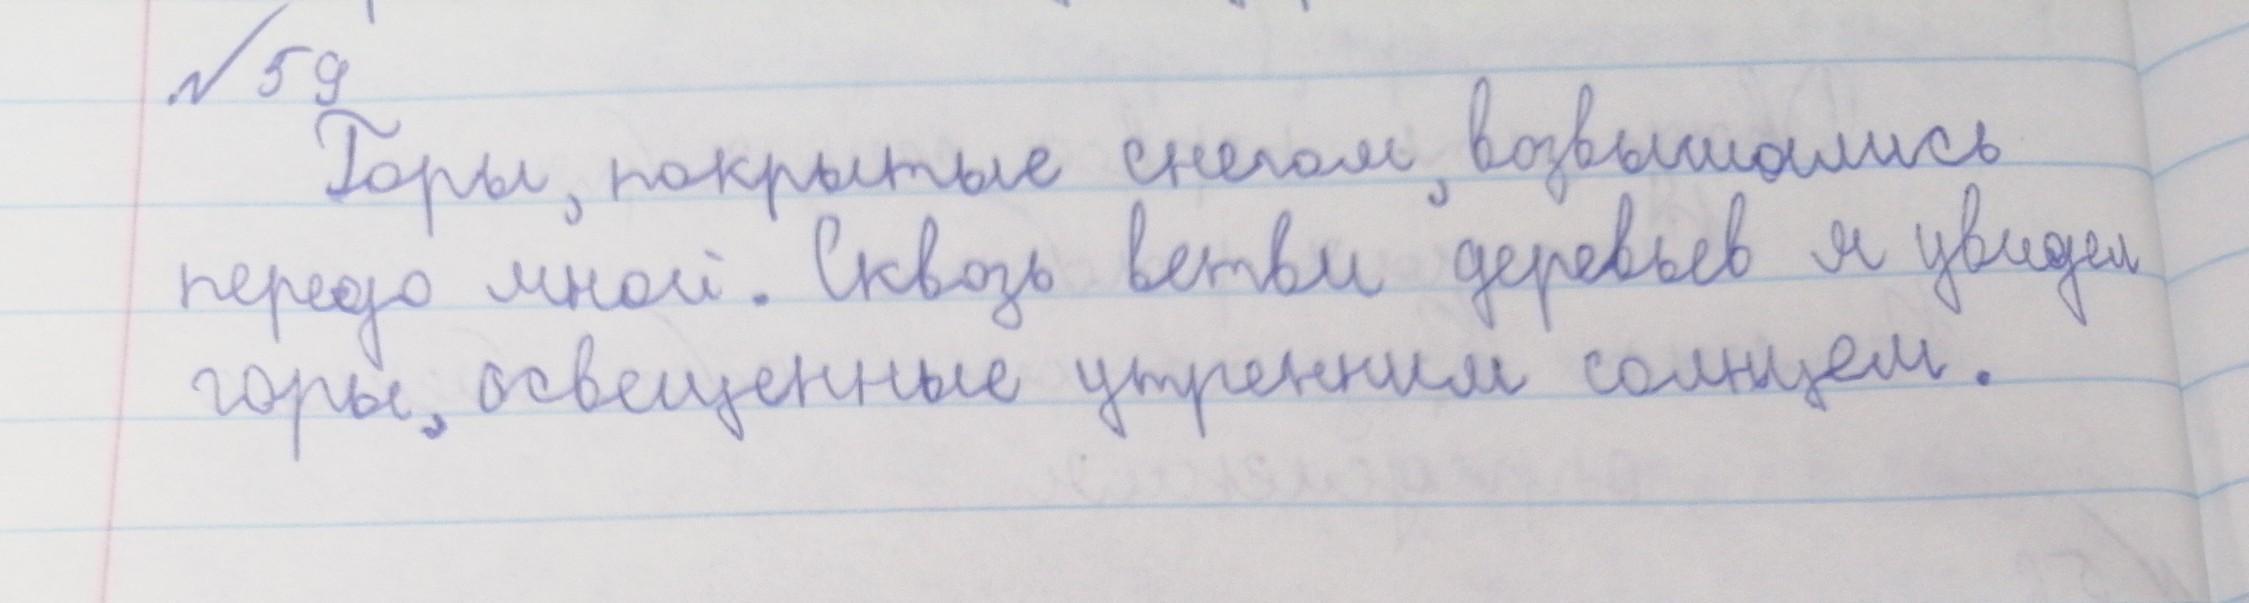 № 59
Горы, покрытые снегом, возвышались
передо мной. Сквозь ветви деревьев я увидел
горы, освещенные утренним солнцем.